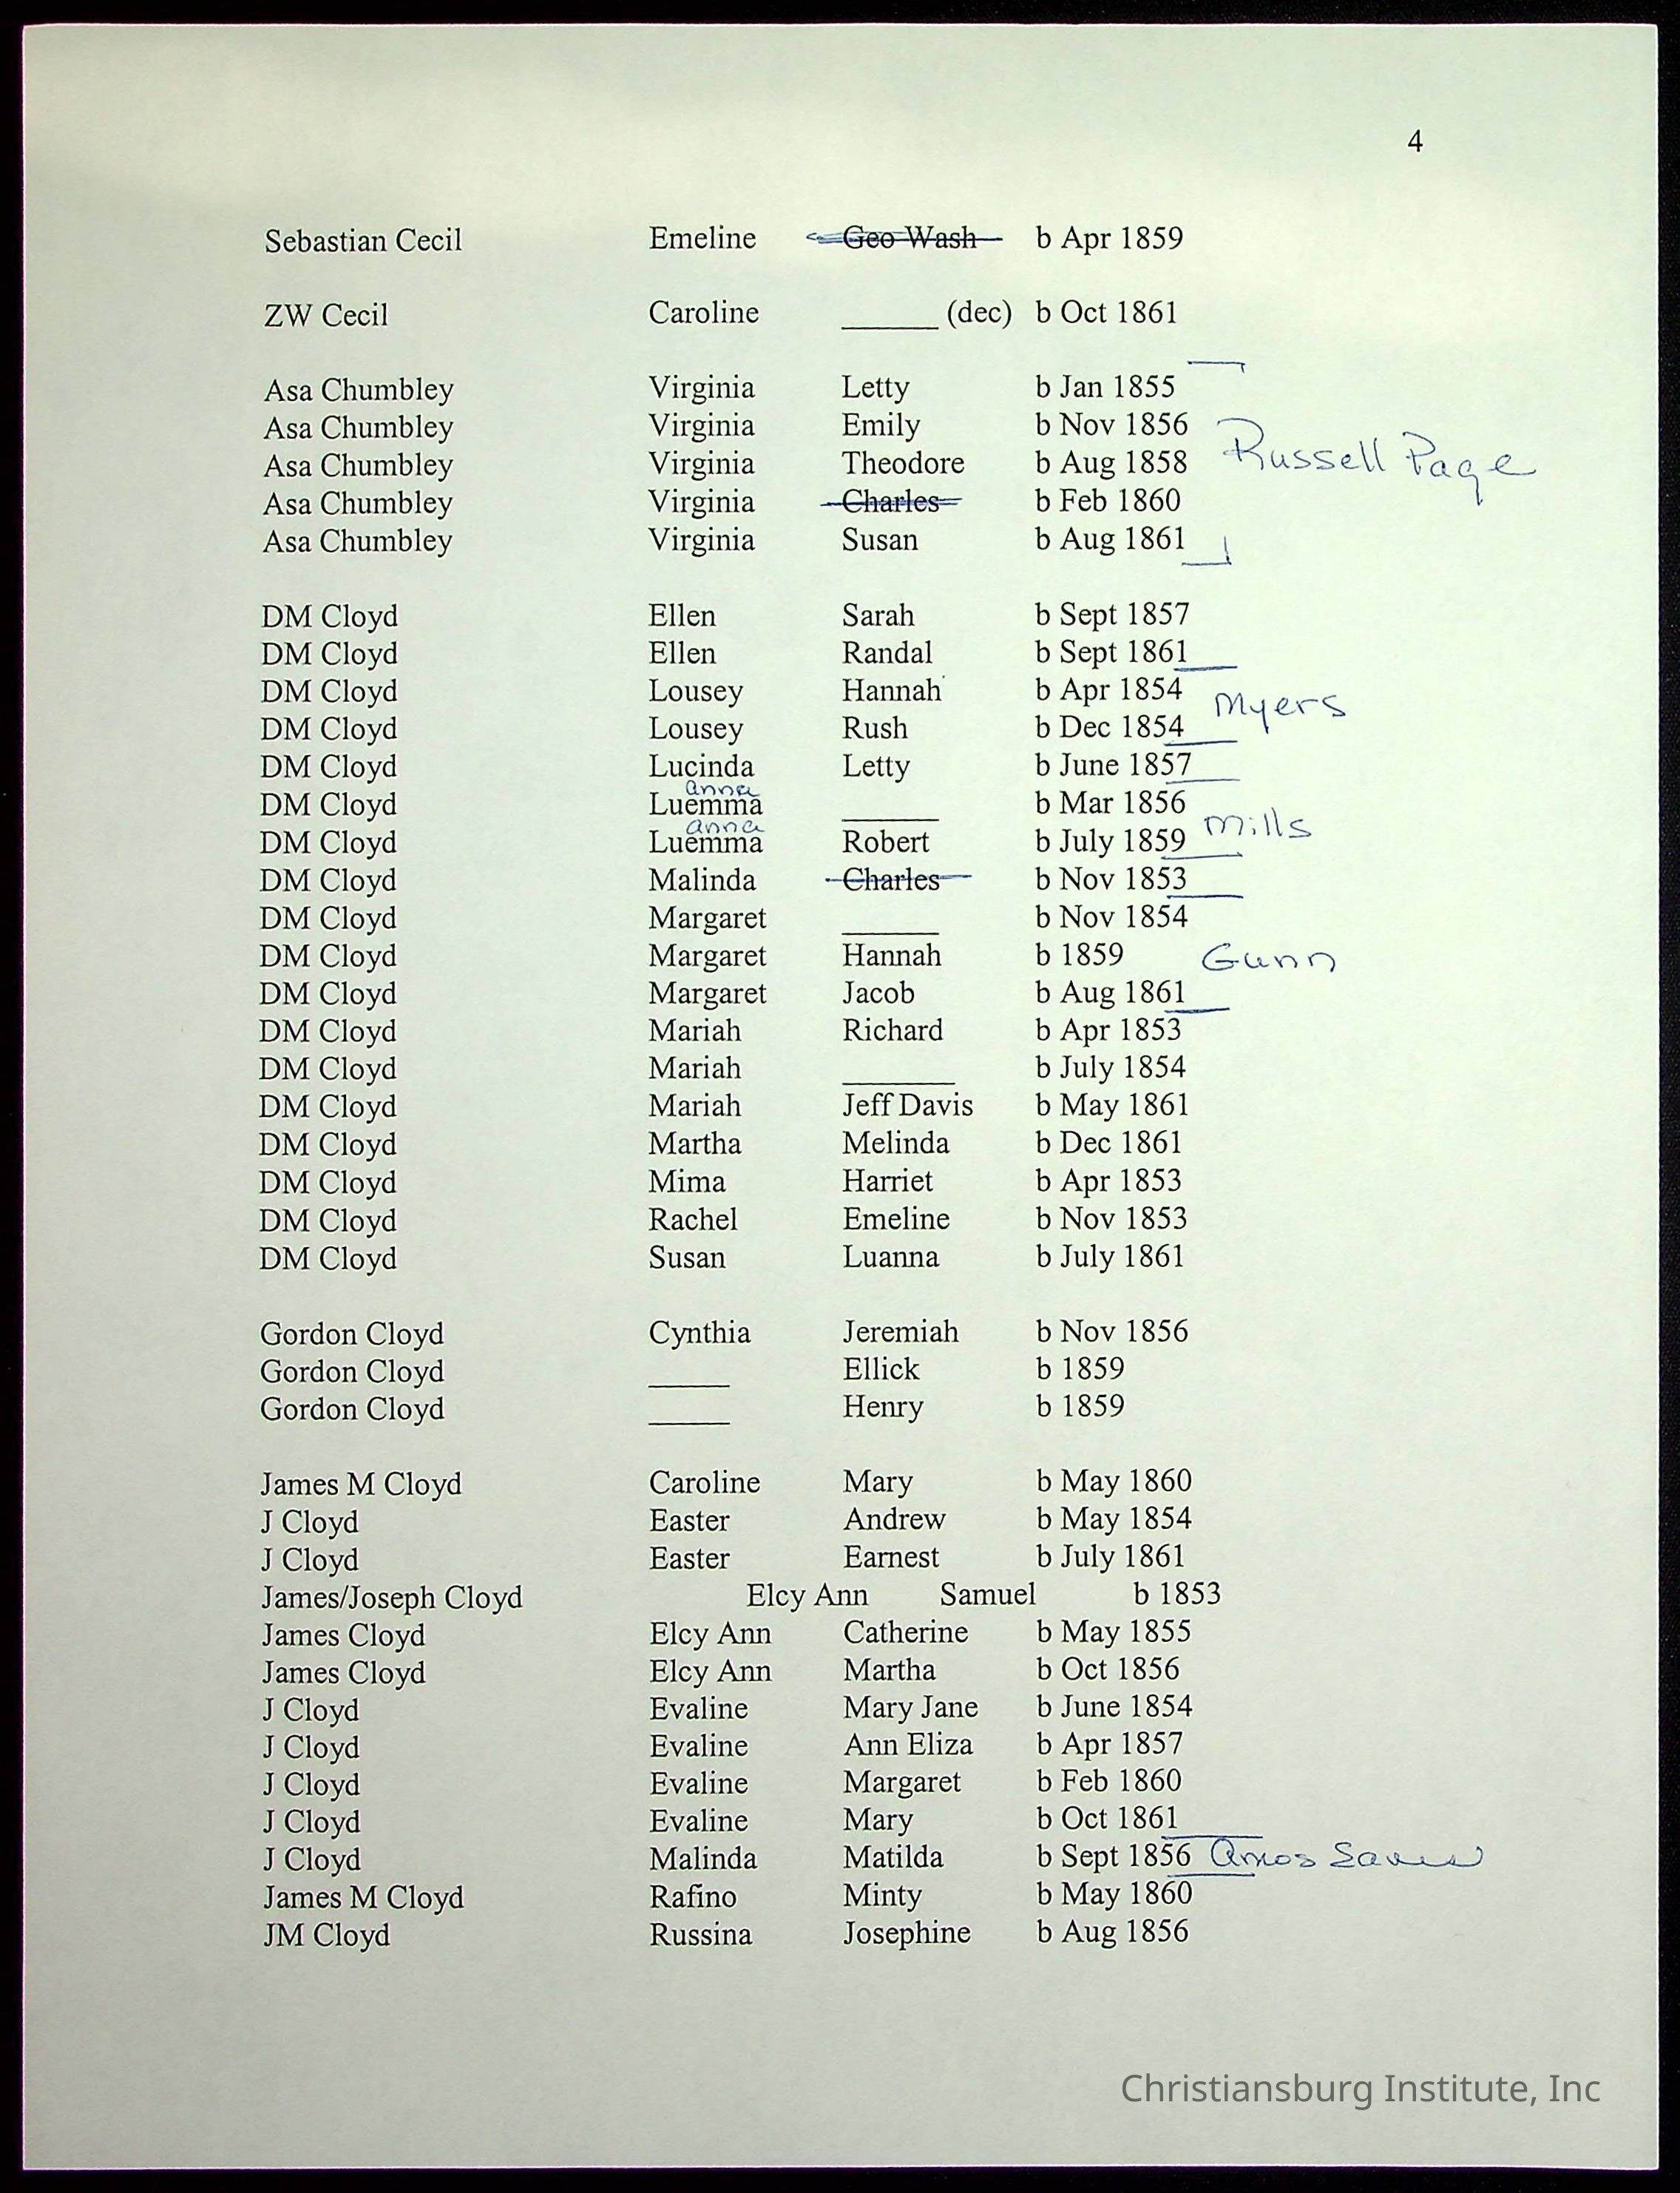 4
Sebastian Cecil Emeline Geo Wash b Apr 1859
ZW Cecil Caroline ______ (dec) b Oct 1861
Asa Chumbley Virginia Letty b Jan 1855
Asa Chumbley Virginia Emily b Nov 1856
Asa Chumbley Virginia Theodore b Aug 1858 Russell Page
Asa Chumbley Virginia Charles b Feb 1860
Asa Chumbley Virginia Susan b Aug 1861
DM Cloyd Ellen Sarah b Sept 1857
DM Cloyd Ellen Randal b Sept 1861
DM Cloyd Lousey Hannah b Apr 1854 Myers
DM Cloyd Lousey Rush b Dec 1854
DM Cloyd Lucinda Letty b June 1857
anna
DM Cloyd Luemma ______ b Mar 1856
anna
DM Cloyd Luemma Robert b July 1859 Mills
DM Cloyd Malinda Charles b Nov 1853
DM Cloyd Margaret ______ b Nov 1854
DM Cloyd Margaret Hannah b 1859 Gunn
DM Cloyd Margaret Jacob b Aug 1861
DM Cloyd Mariah Richard b Apr 1853
DM Cloyd Mariah _______ b July 1854
DM Cloyd Mariah Jeff Davis b May 1861
DM Cloyd Martha Melinda b Dec 1861
DM Cloyd Mima Harriet b Apr 1853
DM Cloyd Rachel Emeline b Nov 1853
DM Cloyd Susan Luanna b July 1861
Gordon Cloyd Cynthia Jeremiah b Nov 1856
Gordon Cloyd _____ Ellick b 1859
Gordon Cloyd _____ Henry b 1859
James M Cloyd Caroline Mary b May 1860
J Cloyd Easter Andrew b May 1854
J Cloyd Easter Earnest b July 1861
James/Joseph Cloyd Elcy Ann Samuel b 1853
James Cloyd Elcy Ann Catherine b May 1855
James Cloyd Elcy Ann Martha b Oct 1856
J Cloyd Evaline Mary Jane b June 1854
J Cloyd Evaline Ann Eliza b Apr 1857
J Cloyd Evaline Margaret b Feb 1860
J Cloyd Evaline Mary b Oct 1861
J Cloyd Malinda Matilda b Sept 1856 Amos
James M Cloyd Rafino Minty b May 1860
JM Cloyd Russina Josephine b Aug 1856
Christiansburg Institute, Inc